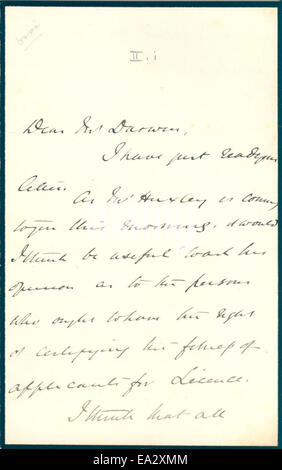 II. i
Dear Mr Darwin,
I have just read your
letter. As Mr Huxley is coming
to you this morning, it would
I think be useful to ask his
opinion as to the persons
who ought to have the right
of certifying the fitness of
applicants for Licence.
I think that all
alamy
Image ID: EA2XMM
www.alamy.com